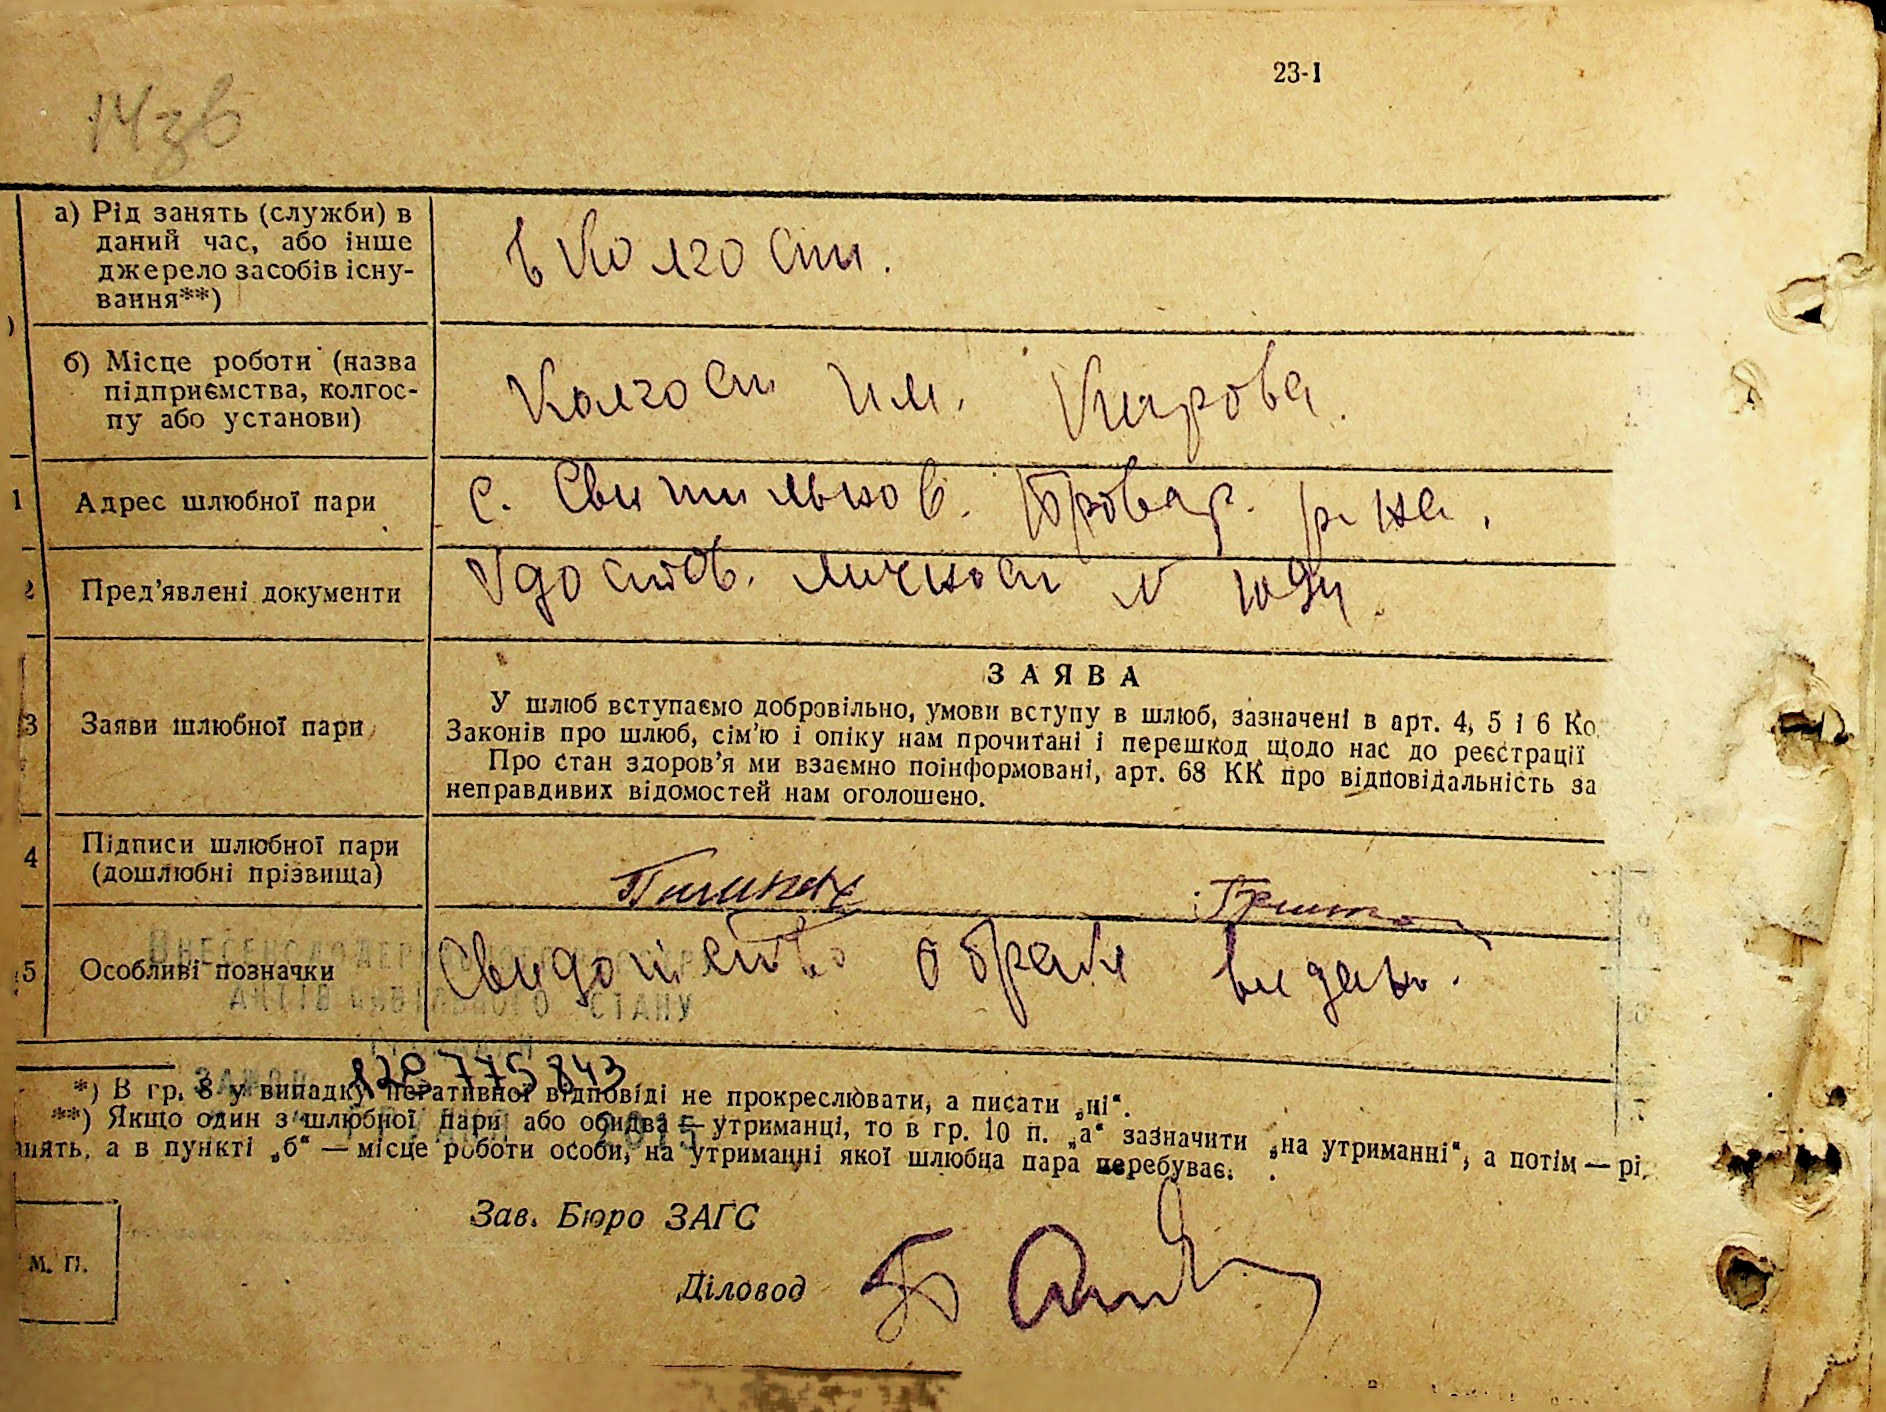 23-I
14 зв
а) Рід занять (служби) в
даний час, або інше
джерело засобів існу-
вання**)
в колгоспи.
б) Місце роботи (назва
підприємства, колгос-
пу або установи)
Колгосп им. Кирова.
1 Адрес шлюбної пари
с. Свитильнов. Бровар. р-на.
2 Пред'явлені документи
Удостов. личност N 1094.
3 Заяви шлюбної пари
ЗАЯВА
У шлюб вступаємо добровільно, умови вступу в шлюб, зазначені в арт. 4, 5 і 6 Ко
Законів про шлюб, сім'ю і опіку нам прочитані і перешкод щодо нас до реєстрації
Про стан здоров'я ми взаємно поінформовані, арт. 68 КК про відповідальність за
неправдивих відомостей нам оголошено.
4 Підписи шлюбної пари
(дошлюбні прізвища)
5 Особливі позначки
Свидотство о браке видано.
АКТІВ ЦИВІЛЬНОГО СТАНУ
*) В гр. 8 у випадку негативної відповіді не прокреслювати, а писати „ні“.
**) Якщо один з шлюбної пари або обидва — утриманці, то в гр. 10 п. „а“ зазначити „на утриманні“, а потім — рі
нять, а в пункті „б“ — місце роботи особи, на утриманні якої шлюбна пара перебуває.
Зав. Бюро ЗАГС
М. П.
Діловод